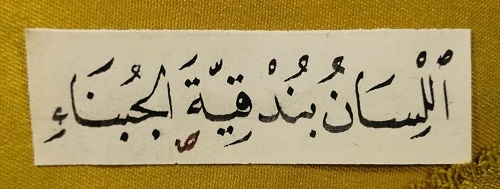 اَللِّسَانُ بُنْدُقِيَّةَ الجُبَنَاءِ